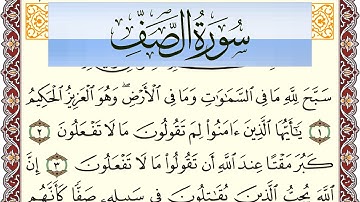 سُورَةُ الصَّفِّ
سَبَّحَ لِلَّهِ مَا فِي السَّمَاوَاتِ وَمَا فِي الْأَرْضِ ۖ وَهُوَ الْعَزِيزُ الْحَكِيمُ
١ يَا أَيُّهَا الَّذِينَ ءَامَنُوا لِمَ تَقُولُونَ مَا لَا تَفْعَلُونَ ٢
كَبُرَ مَقْتًا عِندَ اللَّهِ أَن تَقُولُوا مَا لَا تَفْعَلُونَ ٣ إِنَّ
اللَّهَ يُحِبُّ الَّذِينَ يُقَاتِلُونَ فِي سَبِيلِهِ صَفًّا كَأَنَّهُم